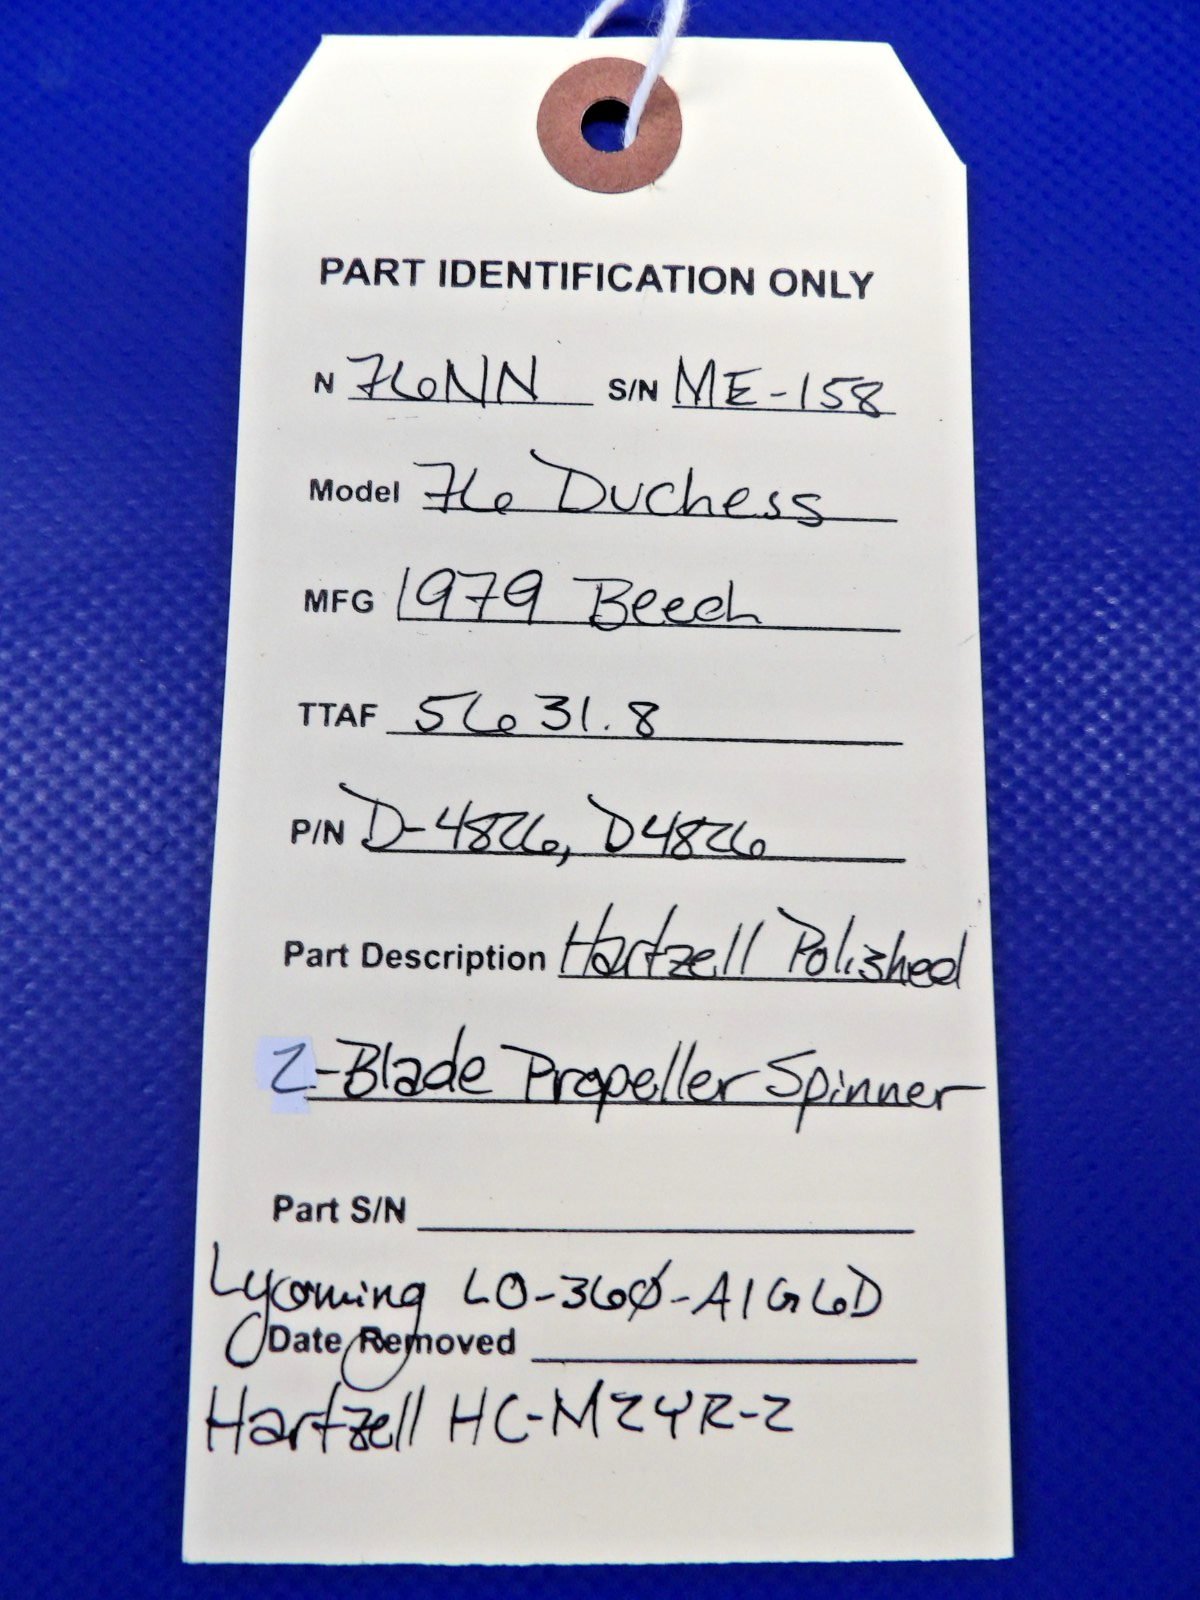 PART IDENTIFICATION ONLY
N 76NN S/N ME-158
Model 76 Duchess
MFG 1979 Beech
TTAF 5631.8
P/N D-4826, D4826
Part Description Hartzell Polished
2-Blade Propeller Spinner
Part S/N
Lycoming LO-360-A1G6D
Date Removed
Hartzell HC-M2YR-2